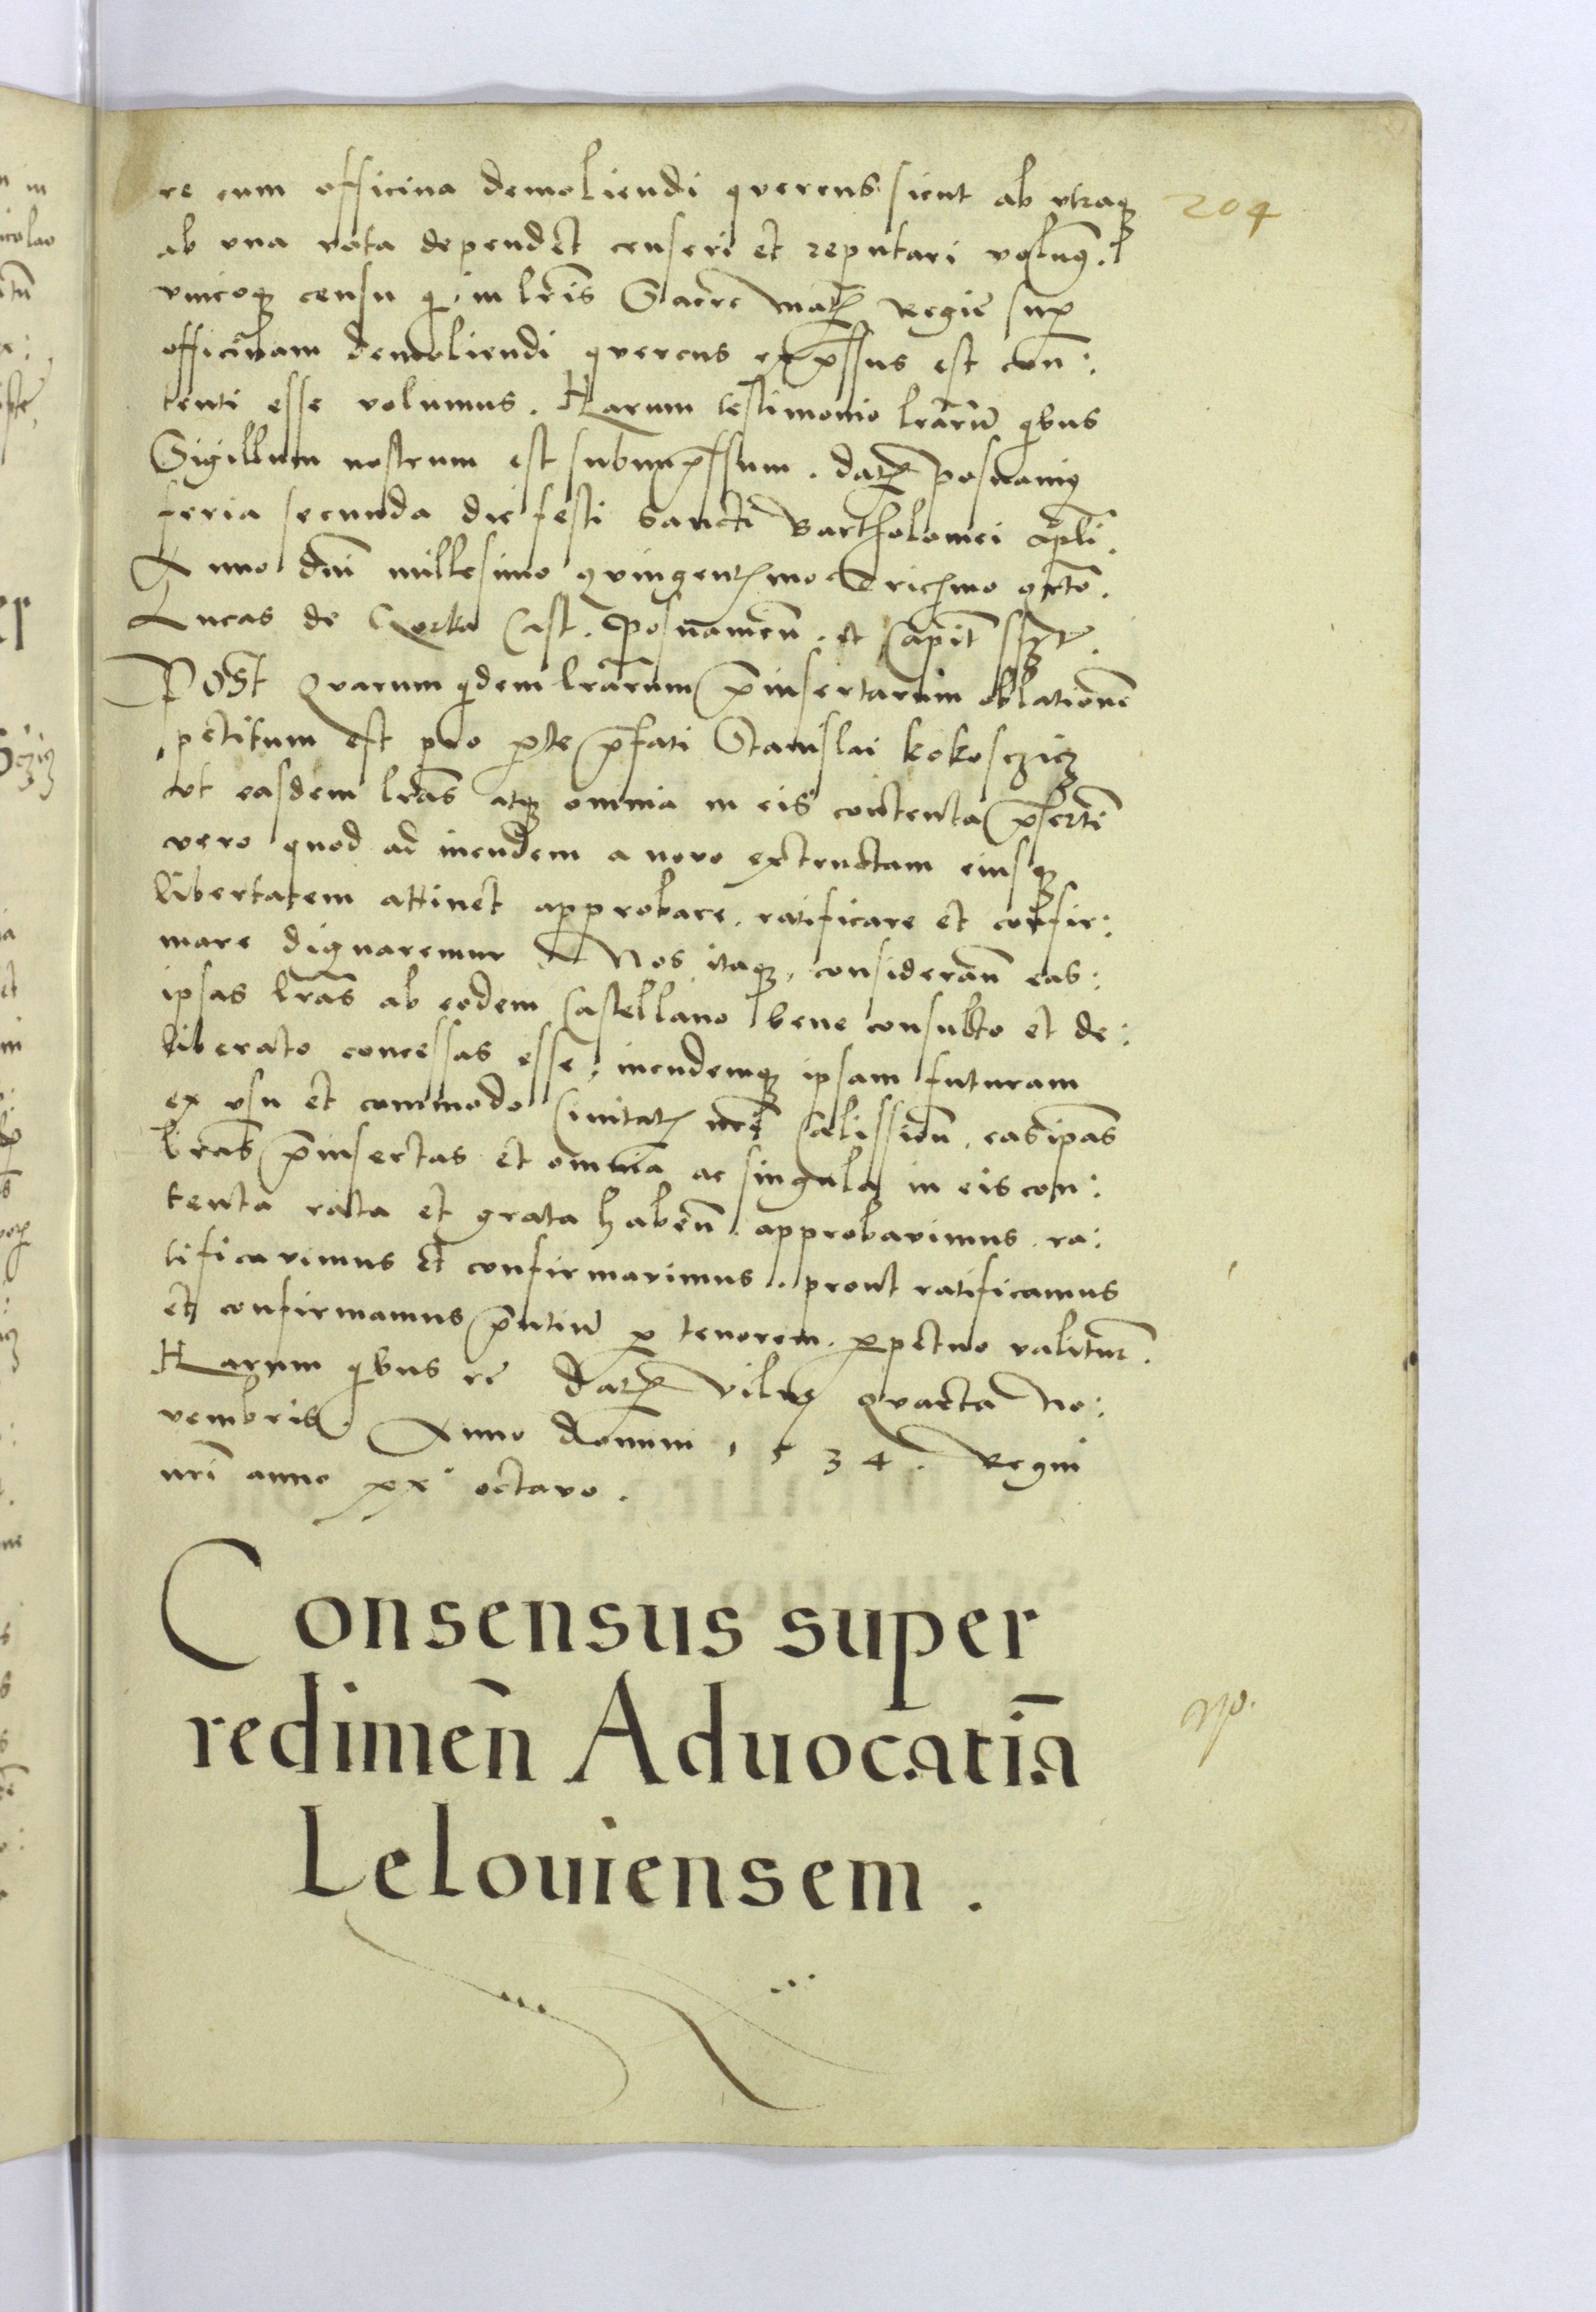 204
re cum officina demoliendi quercus sicut ab vtraq
ab vna rota dependet censeri et reputari volumꝰ.
vnicoq censu q in lrīs Sacre mat Regiē sup
officinam demoliendi quercus expssus est con:
tenti esse volumus. Harum testimonio lrārū qbus
Sigillum nostrum est subimpssum. dat posnanię
feria secunda die festi sancti Bartholomei apli.
Anno dnī millesimo quingentmo Tricmo octō.
Lucas de Gorka Cast. Posnanień. et Capit
POSt Quarum qdem lrārum pinsertarum oblationē
petitum est pro pte pfati Stanislai kokosczicz
vt easdem lrās atq omnia in eis contenta psertī
vero quod ad incudem a novo extructam eiusq
libertatem attinet approbare. ratificare et confir:
mare dignaremur Nos itaq, considerań eas:
ipsas lrās ab eodem Castellano bene consulto et de:
liberato concessas esse, incudemq ipsam futuram
ex vsu et commodo Civitat nrē Calissień. eas ipās
lrās pinsertas et omnia ac singula in eis con:
tenta rata et grata habeń. approbavimus. ra:
tificavimus et confirmavimus. prout ratificamus
et confirmamus pntiū p tenorem. perpetuo valitur.
Harum qbus rē dat Vilnę Quarta No:
vembris. Anno domini 1534. Regni
nrī anno xx° octavo.
Consensus super
redimeñ Aduocatiā
Leloviensem.